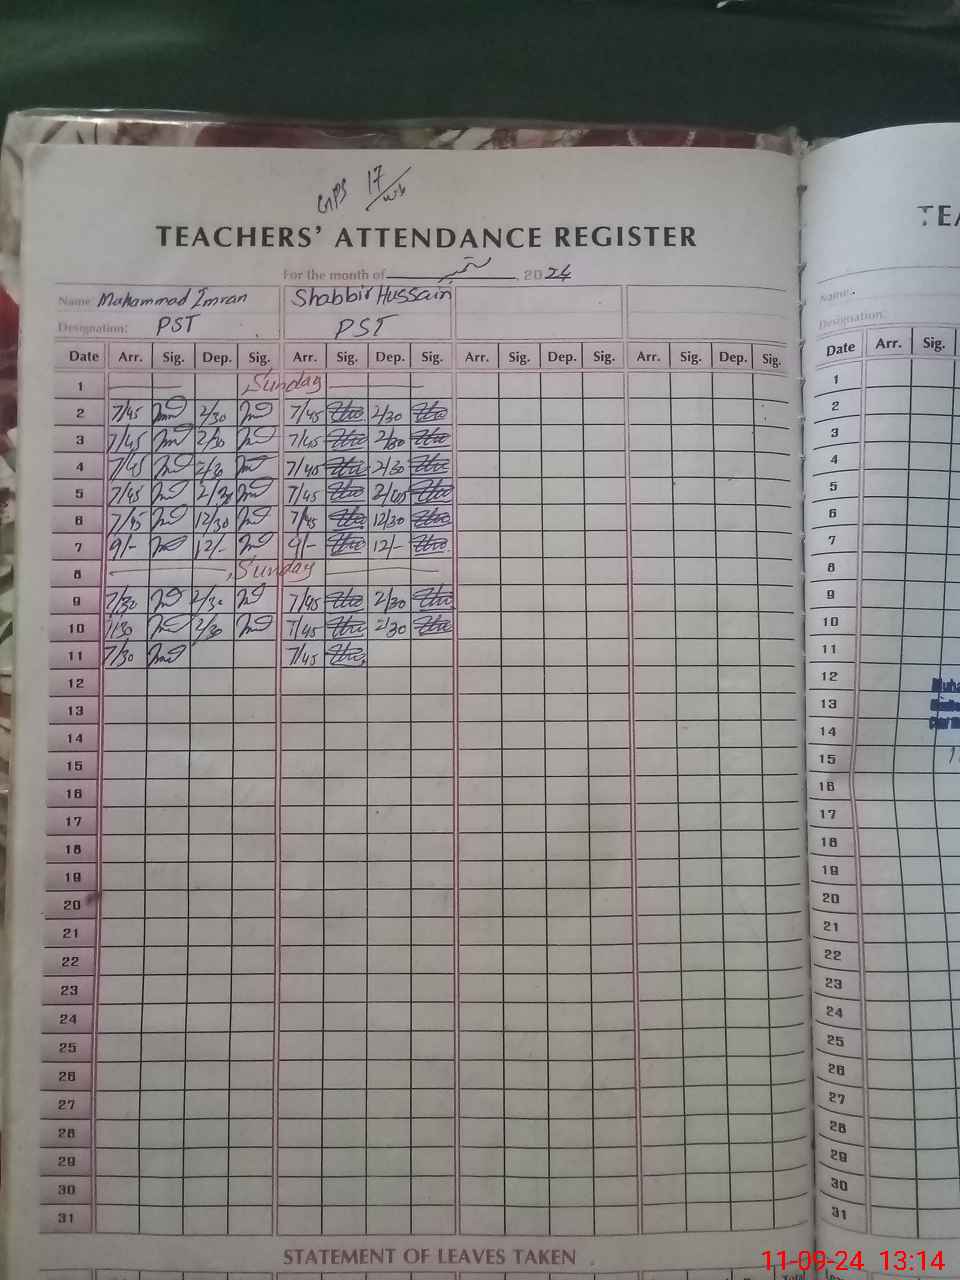 GPS 17/WB
TEACHERS' ATTENDANCE REGISTER
For the month of ستمبر, 2024
Name: Muhammad Imran Shabbir Hussain
Designation: PST PST
Date Arr. Sig. Dep. Sig. Arr. Sig. Dep. Sig. Arr. Sig. Dep. Sig. Arr. Sig. Dep. Sig.
1 Sunday
2 7/45 2/30 7/45 2/30
3 7/45 2/30 7/45 2/30
4 7/45 2/30 7/45 2/30
5 7/45 2/30 7/45
6 7/45 12/30 7/45 12/30
7 9/- 12/- 9/- 12/-
8 Sunday
9 7/30 2/30 7/45 2/30
10 7/30 2/30 7/45 2/30
11 7/30 7/45
12
13
14
15
16
17
18
19
20
21
22
23
24
25
26
27
28
29
30
31
STATEMENT OF LEAVES TAKEN
TEA
Name:
Designation:
Date Arr. Sig.
1
2
3
4
5
6
7
8
9
10
11
12
13
14
15
16
17
18
19
20
21
22
23
24
25
26
27
28
29
30
31
11-09-24 13:14